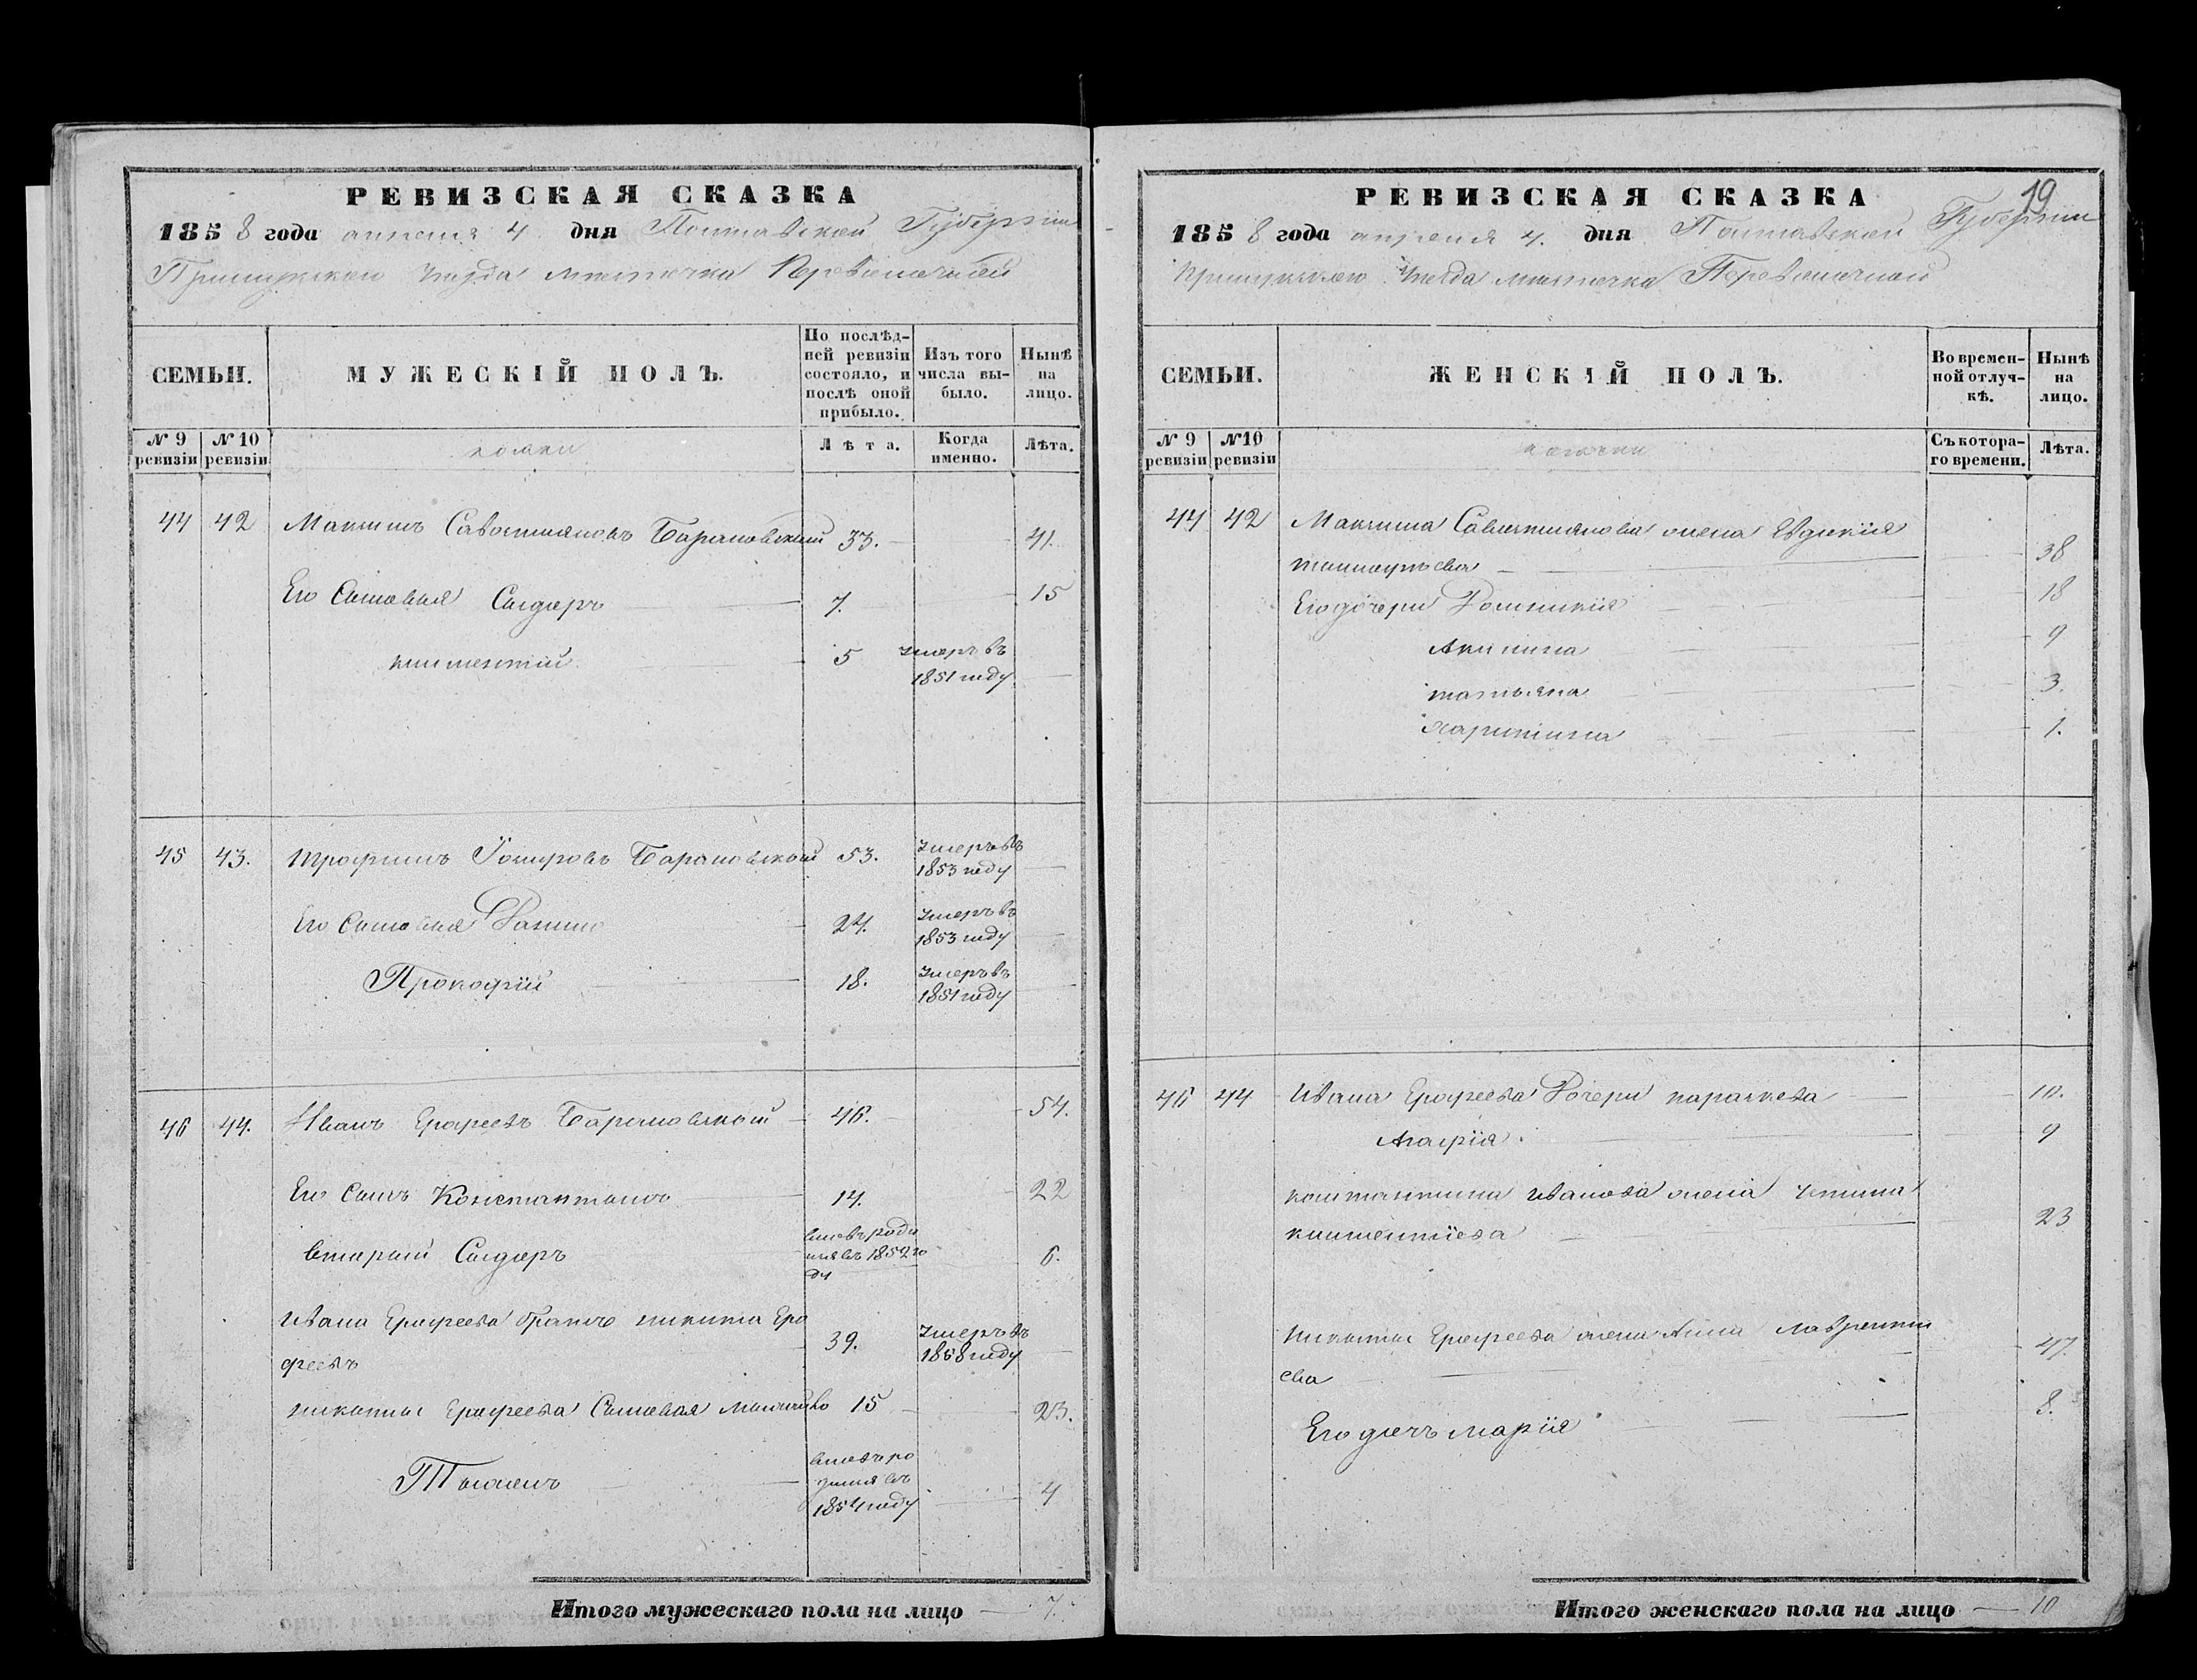 РЕВИЗСКАЯ СКАЗКА
1858 года апреля 4 дня Полтавской Губернии
Прилукского Уезда местечка Переволочной
СЕМЬИ.
МУЖЕСКІЙ ПОЛЪ.
По послѣд-
ней ревизіи
состояло, и
послѣ оной
прибыло.
Изъ того
числа вы-
было.
Нынѣ
на
лицо.
№ 9
ревизіи
№ 10
ревизіи
козаки
Лѣта.
Когда
именно.
Лѣта.
44 42 Максимъ Савостиановъ Барановский 33. 41.
Его Сыновья Сидоръ 7. 15
климентий 5 умеръ въ
1851 году
45 43. трофимъ Барановский 53. умеръ въ
1853 году
Его Сыновья 24. умеръ въ
1853 году
Прокофий 18. умеръ въ
1851 году
46 44. Иванъ Ерофеевъ Барановский 46. 54.
Его Сынъ Константинъ 14. 22
вторый Сидоръ вновь роди
лся въ 1852 го
ду 6.
Ивана Ерофеева братъ никита Еро
феевъ 39. умеръ въ
1858 году
никиты Ерофеева Сыновья 15 23.
вновь ро
дился въ
1854 году 4
Итого мужескаго пола на лицо 7.
19
РЕВИЗСКАЯ СКАЗКА
1858 года апреля 4. дня Полтавской Губернии
Прилукского Уезда местечка Переволочной
СЕМЬИ.
ЖЕНСКІЙ ПОЛЪ.
Во времен-
ной отлуч-
кѣ.
Нынѣ
на
лицо.
№ 9
ревизіи
№ 10
ревизіи
козачки
Съ котора-
го времени.
Лѣта.
44 42 Максима Савостиянова жена Евдокия
38
Его дочери Домникия 18
Акилина 9
татьяна 3.
харитина 1.
46 44 Ивана Ерофеева Дочери параскева 10.
Агафия 9
константина иванова жена устина
климентиева 23
никиты Ерофеева жена Анна лаврентии
ева 47.
Его дочь мария 8.
Итого женскаго пола на лицо 10